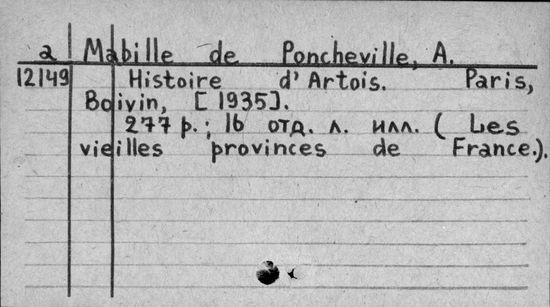 a Mabille de Poncheville, A.
12149 Histoire d'Artois. Paris,
Boivin, [1935].
277 p.; 16 отд. л. илл. (Les
vieilles provinces de France.).